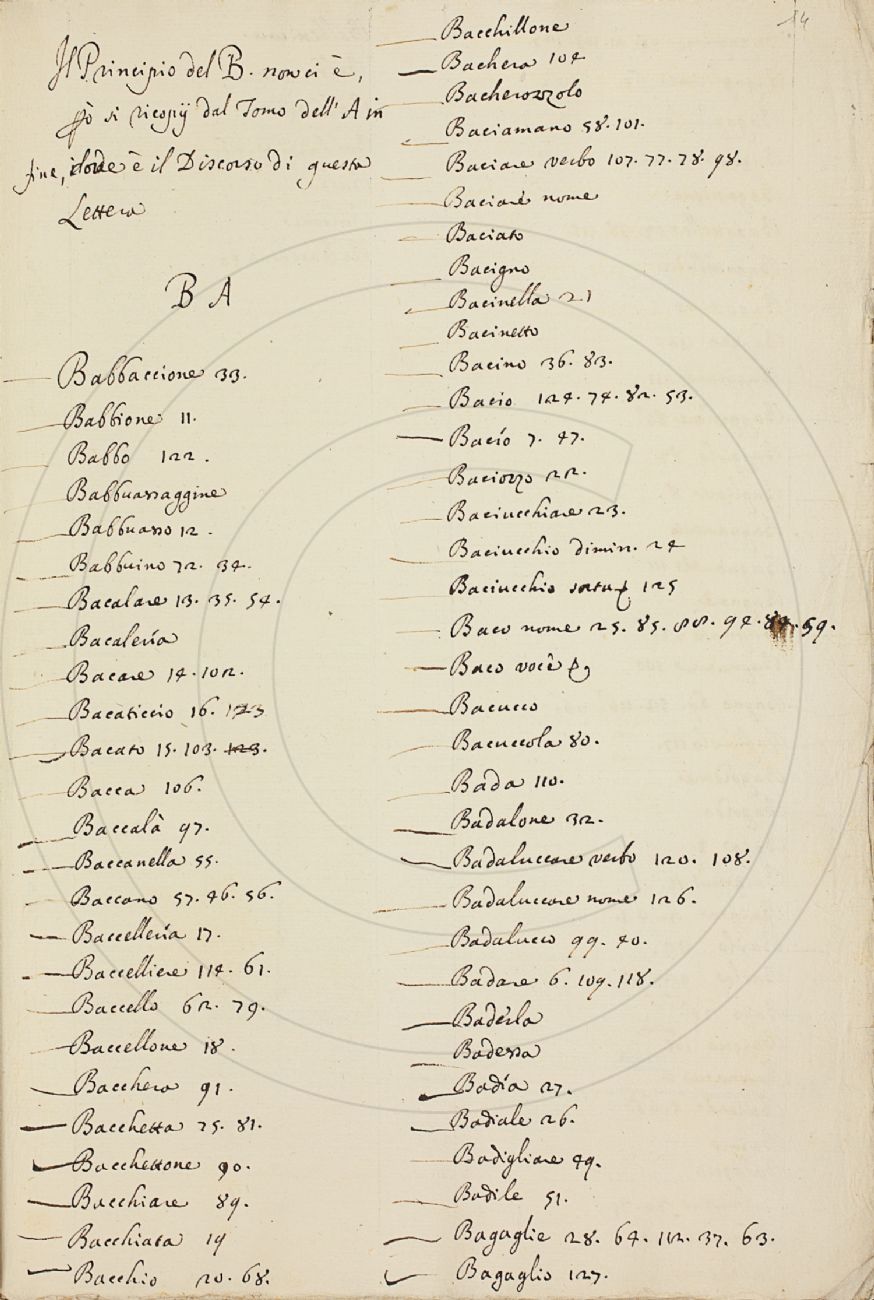 14
Il Principio del B. non ci è,
p̱ò si ricopij dal Tomo dell' A in
fine, dove è il Discorso di questa
Lettera
B A
Babbaccione 33.
Babbione 11.
Babbo 122.
Babbuassaggine
Babbuasso 12.
Babbuino 72. 34.
Bacalare 13. 35. 54.
Bacalería
Bacare 14. 102.
Bacaticcio 16. 123
Bacato 15. 103. 123.
Bacca 106.
Baccalà 97.
Baccanella 55.
Baccano 57. 46. 56.
Baccellería 17.
Baccelliere 114. 61.
Baccello 62. 79.
Baccellone 18.
Bacchera 91.
Bacchetta 75. 81.
Bacchettone 90.
Bacchiare 89.
Bacchiata 19
Bacchio 20. 68.
Bacchillone
Bachera 104
Bacherozzolo
Baciamano 58. 101.
Baciare verbo 107. 77. 78. 98.
Baciare nome
Baciato
Bacigno
Bacinella 21
Bacinetto
Bacino 36. 83.
Bacio 124. 74. 82. 53.
Bacío 7. 47.
Baciozzo 22.
Baciucchiare 23.
Baciucchio dimin. 24
Baciucchio 125
Baco nome 25. 85. 88. 94. 59.
Baco voce
Bacucco
Bacuccola 80.
Bada 110.
Badalone 32.
Badaluccare verbo 120. 108.
Badaluccare nome 126.
Badalucco 99. 40.
Badare 6. 109. 118.
Badérla
Badessa
Badía 27.
Badiale 26.
Badigliare 49.
Badile 51.
Bagaglie 28. 64. 112. 37. 63.
Bagaglio 127.